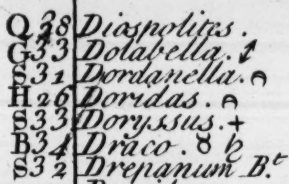 Q 38 Diospolites.
G 33 Dolabella. ↕
S 31 Dordanella.
H 26 Doridas.
S 33 Doryssus. +
B 34 Draco. ♉ ♄
S 32 Drepanum B.t